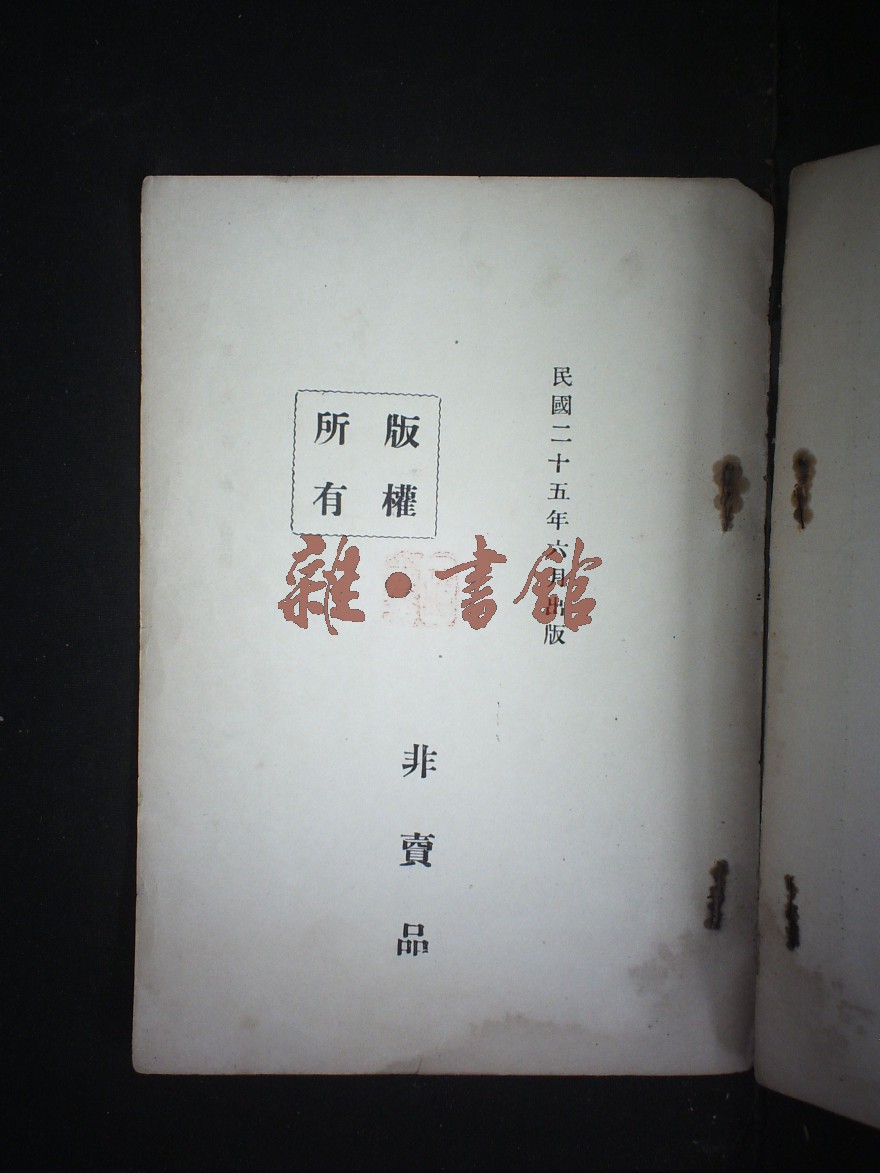 民國二十五年六月出版
版權
所有
雜•書館
非賣品